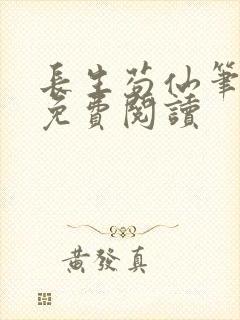 長生苟仙筆
免費閱讀
黃發真